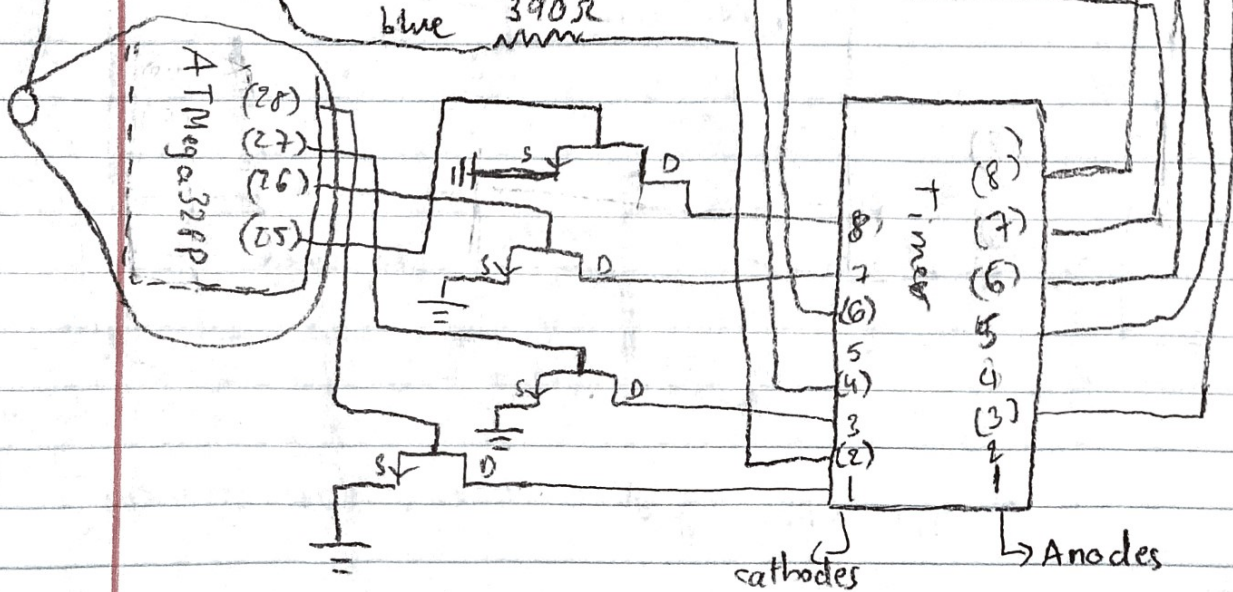 blue 390Ω
ATMega328P
(28)
(27)
(26)
(25)
S D
S D
S D
S D
Timer
8
7
(6)
5
(4)
3
(2)
1
(8)
(7)
(6)
5
4
(3)
2
1
cathodes
Anodes